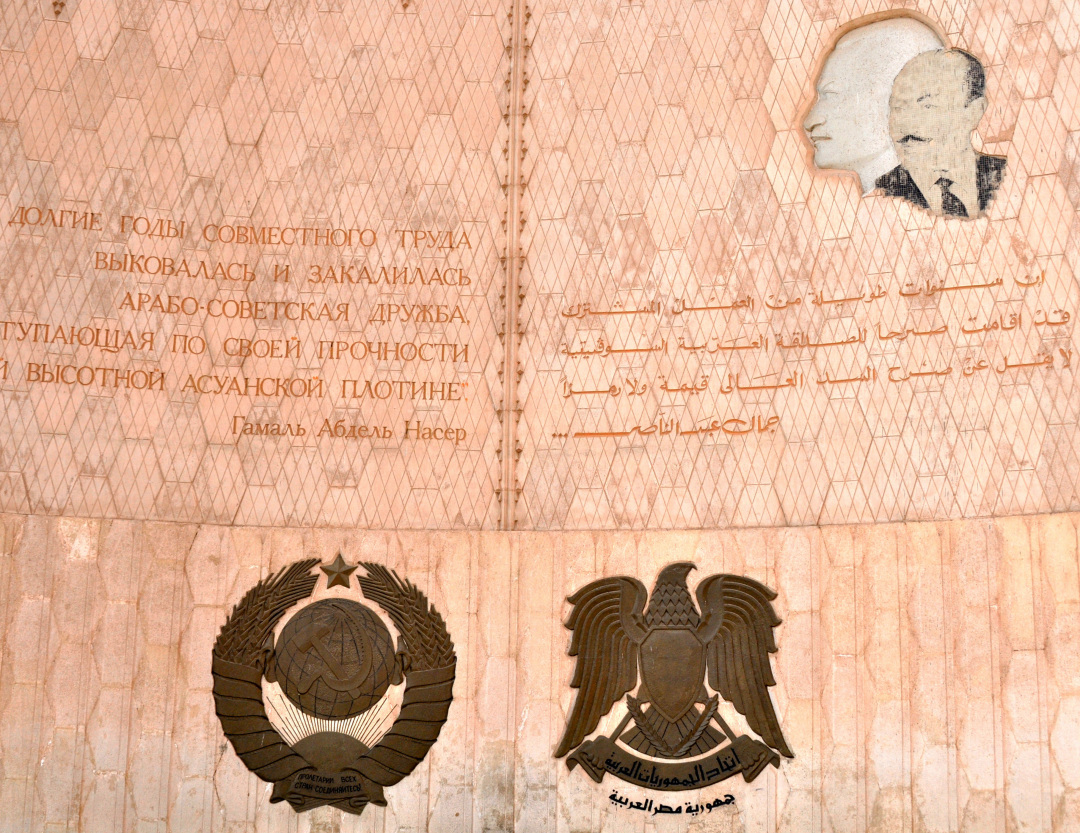 ДОЛГИЕ ГОДЫ СОВМЕСТНОГО ТРУДА
ВЫКОВАЛАСЬ И ЗАКАЛИЛАСЬ
АРАБО-СОВЕТСКАЯ ДРУЖБА,
ТУПАЮЩАЯ ПО СВОЕЙ ПРОЧНОСТИ
Й ВЫСОТНОЙ АСУАНСКОЙ ПЛОТИНЕ."
Гамаль Абдель Насер
ان سنوات طويلة من العمل المشترك
قد اقامت صرحا للصداقة العربية السوفيتية
لا يقل عن صرح السد العالى قيمة ولا رمزا
جمال عبد الناصر ...
ПРОЛЕТАРИИ ВСЕХ
СТРАН СОЕДИНЯЙТЕСЬ
اتحاد الجمهوريات العربية
جمهورية مصر العربية